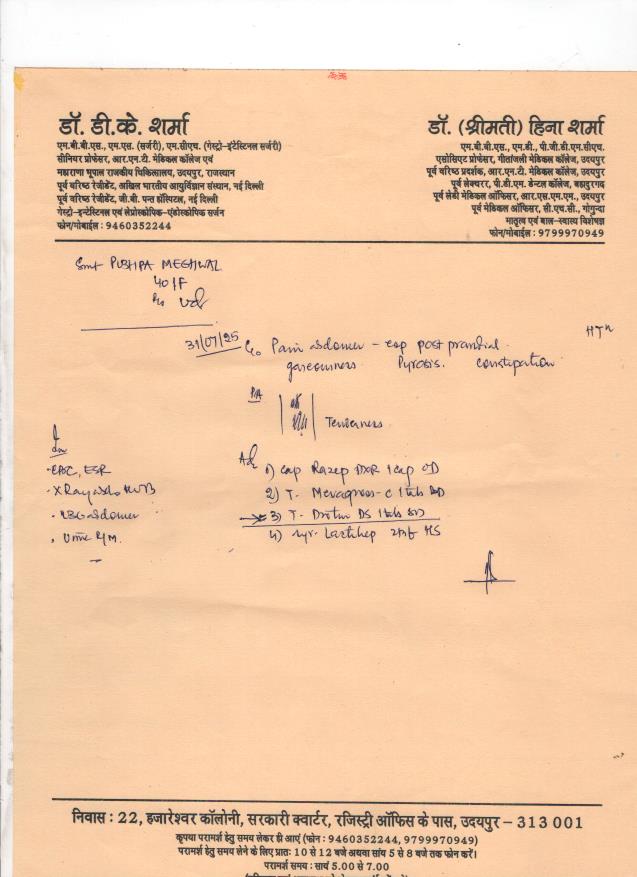 डॉ. डी.के. शर्मा
एम.बी.बी.एस., एम.एस. (सर्जरी), एम.सीएच. (गेस्ट्रो-इंटेस्टिनल सर्जरी)
सीनियर प्रोफेसर, आर.एन.टी. मेडिकल कॉलेज एवं
महाराणा भूपाल राजकीय चिकित्सालय, उदयपुर, राजस्थान
पूर्व वरिष्ठ रेजीडेंट, अखिल भारतीय आयुर्विज्ञान संस्थान, नई दिल्ली
पूर्व वरिष्ठ रेजीडेंट, जी.बी. पन्त हॉस्पिटल, नई दिल्ली
गेस्ट्रो-इन्टेस्टिनल एवं लेप्रोस्कोपिक-एंडोस्कोपिक सर्जन
फोन/मोबाईल : 9460352244
डॉ. (श्रीमती) हिना शर्मा
एम.बी.बी.एस., एम.डी., पी.जी.डी.एम.सीएच.
एसोसिएट प्रोफेसर, गीतांजली मेडिकल कॉलेज, उदयपुर
पूर्व वरिष्ठ प्रदर्शक, आर.एन.टी. मेडिकल कॉलेज, उदयपुर
पूर्व लेक्चरर, पी.डी.एम. डेन्टल कॉलेज, बहादुरगढ़
पूर्व लेडी मेडिकल ऑफिसर, आर.एस.एम.एम., उदयपुर
पूर्व मेडिकल ऑफिसर, सी.एच.सी., गोगुन्दा
मातृत्व एवं बाल-स्वास्थ्य विशेषज्ञ
फोन/मोबाईल : 9799970949
Smt PUSHPA MEGHWAL
40/F
R/o Udr
31/07/25 C/o Pain abdomen - esp post prandial
HTN
gaseousness Pyrosis. constipation
P/A
Tenderness
Inv
Adv
• CBC, ESR
1) Cap Razep DXR 1 cap OD
• X Ray abdo KUB
2) T. 1 tab BD
• USG abdomen
3) T. DS 1 tab
• Urine R/M.
4) Syr. HS
निवास : 22, हजारेश्वर कॉलोनी, सरकारी क्वार्टर, रजिस्ट्री ऑफिस के पास, उदयपुर – 313 001
कृपया परामर्श हेतु समय लेकर ही आएं (फोन : 9460352244, 9799970949)
परामर्श हेतु समय लेने के लिए प्रातः 10 से 12 बजे अथवा सांय 5 से 8 बजे तक फोन करें।
परामर्श समय : सायं 5.00 से 7.00